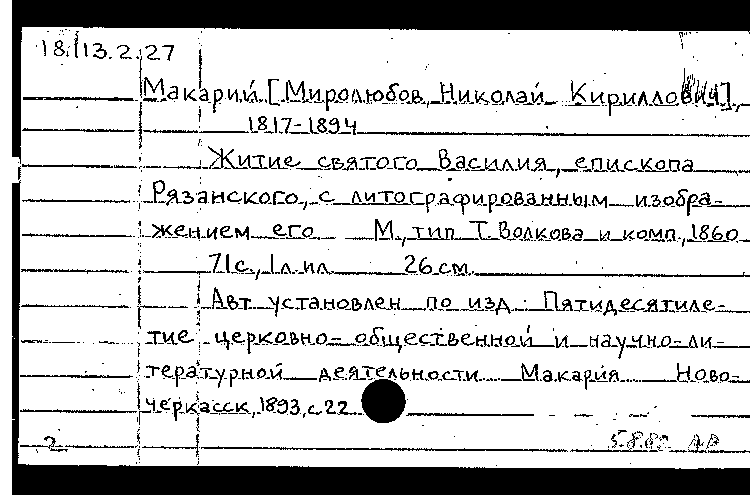 18.113.2.27
Макарий [Миролюбов, Николай Кириллович],
1817-1894
Житие святого Василия, епископа
Рязанского, с литографированным изобра-
жением его М., тип Т. Волкова и комп, 1860
71 с., 1 л. ил 26 см.
Авт установлен по изд.: Пятидесятиле-
тие церковно-общественной и научно-ли-
тературной деятельности Макария Ново-
черкасск, 1893, с. 22
2